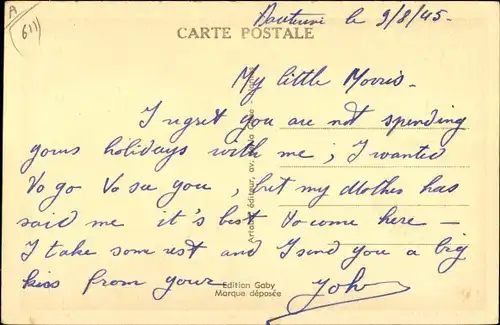 A
(611)
le 9/8/45-
CARTE POSTALE
My little Morris-
I regret you are not spending
yours holidays with me; I wanted
to go to see you, but my Mother has
said me it's best to come here -
I take som rest and I send you a big
kiss from your
John
Edition Gaby
Marque déposée
Artaud, éditeur, av.